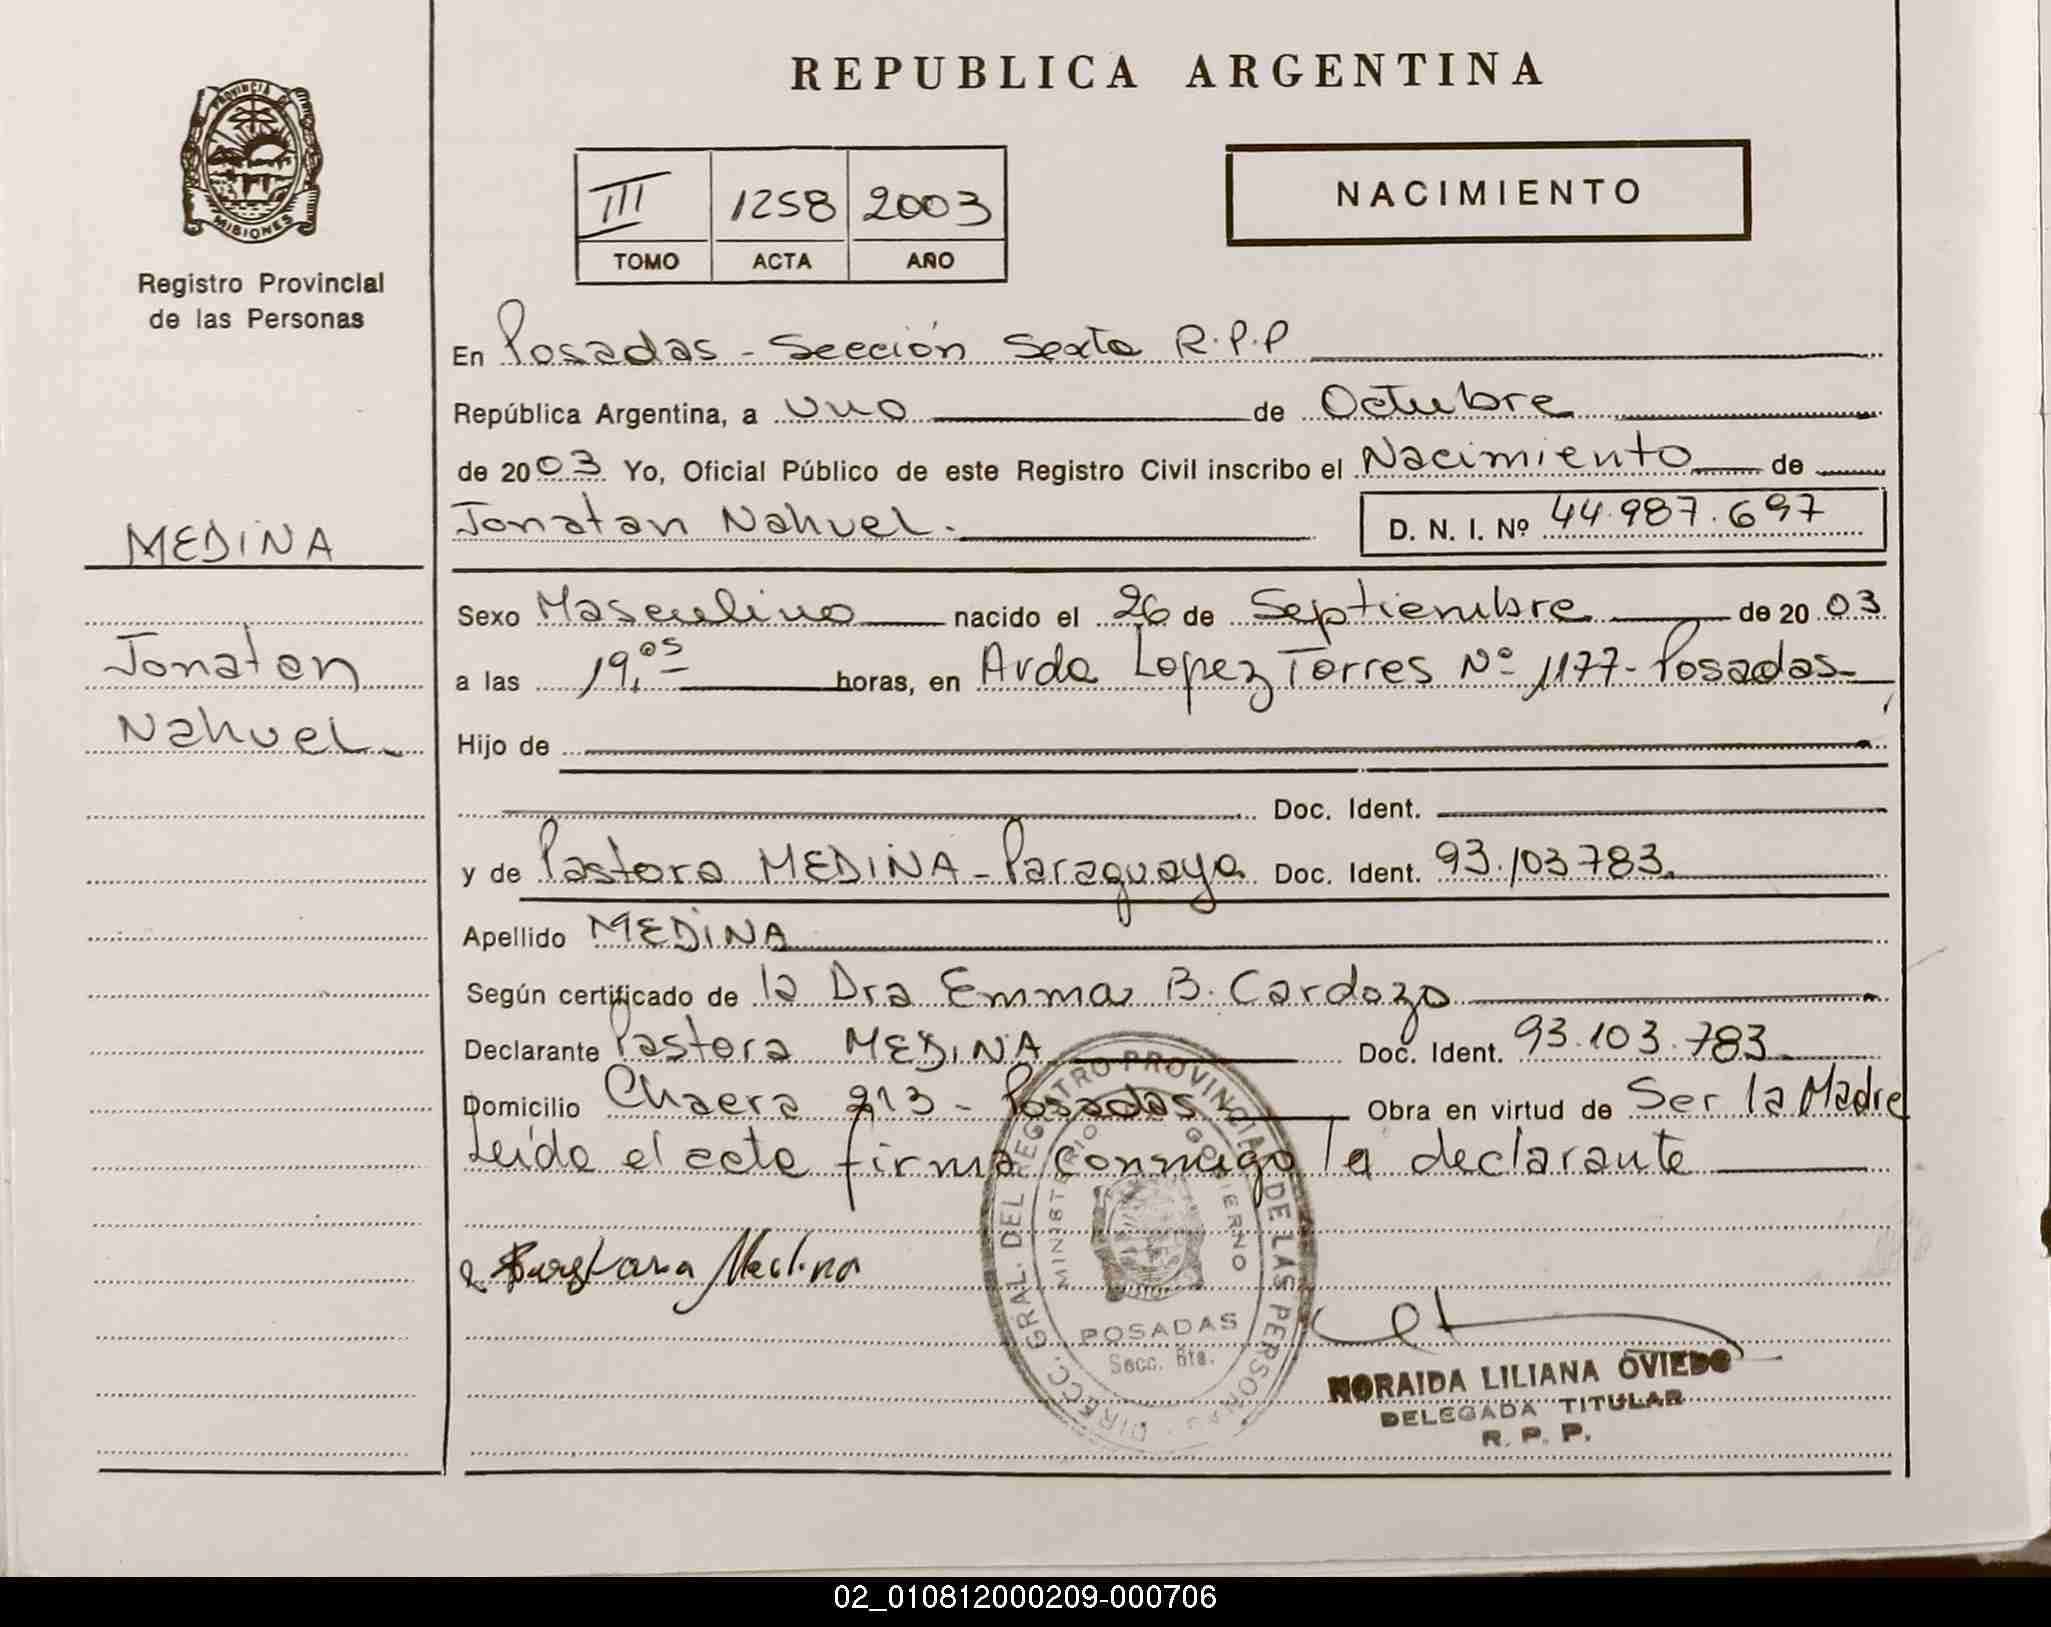 PROVINCIA DE
MISIONES
Registro Provincial
de las Personas
MEDINA
Jonatan
Nahuel
REPUBLICA ARGENTINA
III 1258 2003
TOMO ACTA AÑO
NACIMIENTO
En Posadas - Sección Sexta R.P.P
República Argentina, a uno de Octubre
de 2003 Yo, Oficial Público de este Registro Civil inscribo el Nacimiento de
Jonatan Nahuel. D. N. I. Nº 44.987.697
Sexo Masculino nacido el 26 de Septiembre de 2003
a las 19,05 horas, en Avda Lopez Torres Nº 1177 - Posadas
Hijo de
Doc. Ident.
y de Pastora MEDINA - Paraguaya Doc. Ident. 93.103783.
Apellido MEDINA
Según certificado de la Dra Emma B. Cardozo
Declarante Pastora MEDINA Doc. Ident. 93.103.783
Domicilio Chacra 213 - Posadas Obra en virtud de Ser la Madre
Leído el acta firma conmigo la declarante
Medina
DIRECC. GRAL. DEL REGISTRO PROVINCIAL DE LAS PERSONAS
MINISTERIO GOBIERNO
POSADAS
Secc. 6ta.
NORAIDA LILIANA OVIEDO
DELEGADA TITULAR
R. P. P.
02_010812000209-000706